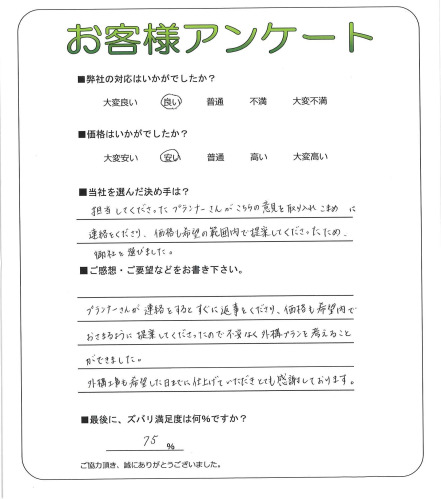 お客様アンケート
■弊社の対応はいかがでしたか？
大変良い 良い 普通 不満 大変不満
■価格はいかがでしたか？
大変安い 安い 普通 高い 大変高い
■当社を選んだ決め手は？
担当してくださったプランナーさんがこちらの意見を取り入れこまめに
連絡をくださり、価格も希望の範囲内で提案してくださったため、
御社を選びました。
■ご感想・ご要望などをお書き下さい。
プランナーさんが連絡をするとすぐに返事をくださり、価格も希望内で
おさまるように提案してくださったので不安なく外構プランを考えること
ができました。
外構工事も希望した日までに仕上げていただきとても感謝しております。
■最後に、ズバリ満足度は何％ですか？
75 ％
ご協力頂き、誠にありがとうございました。